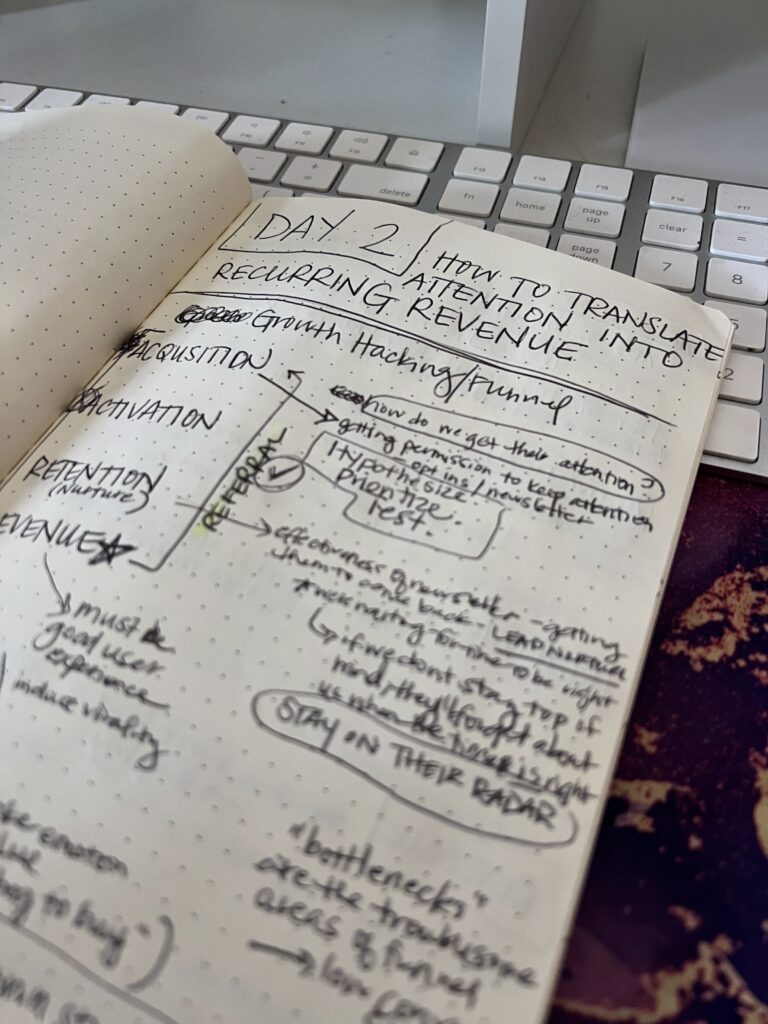 DAY 2
HOW TO TRANSLATE
ATTENTION INTO
RECURRING REVENUE
Growth Hacking/Funnel
ACQUSITION
how do we get their attention?
getting permission to keep attention
opt ins/newsletter
ACTIVATION
Hypothesize
Prioritize.
Test.
REFERRAL
RETENTION
(Nurture)
effectiveness of newsletter - getting
them to come back - LEAD NURTURE
for time to be right
if we don't stay top of
mind, they'll forget about
us when the time is right
STAY ON THEIR RADAR
EVENUE
must be
good user
experience
induce virality
emotion
to buy")
"bottlenecks"
are the troublesome
areas of funnel
low
delete
fn
home
page
up
page
down
clear
=
7
8
F13
F14
F15
F16
F17